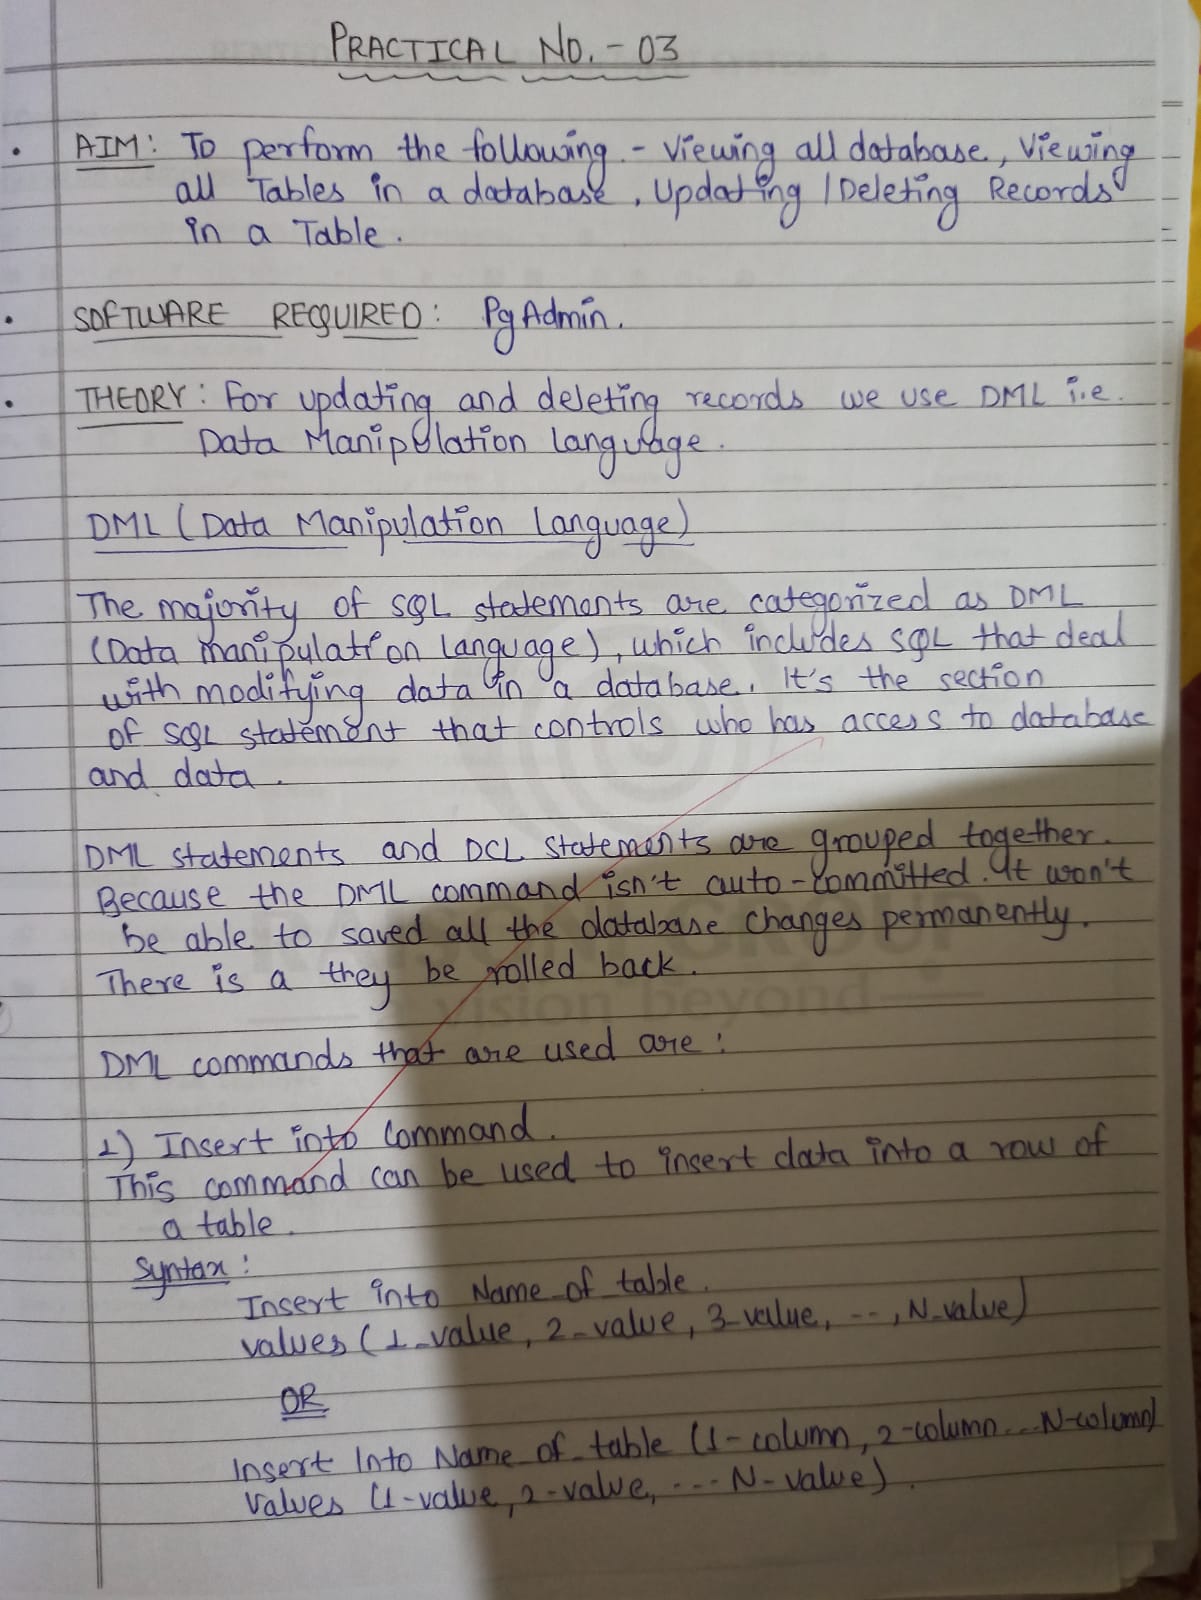 PRACTICAL NO. - 03
• AIM: To perform the following - Viewing all database, Viewing
all Tables in a database, Updating / Deleting Records
in a Table.
• SOFTWARE REQUIRED: PgAdmin.
• THEORY: For updating and deleting records we use DML i.e.
Data Manipulation Language.
DML (Data Manipulation Language)
The majority of SQL statements are categorized as DML
(Data manipulation language), which includes SQL that deal
with modifying data in a database. It's the section
of SQL statement that controls who has access to database
and data.
DML statements and DCL statements are grouped together.
Because the DML command isn't auto-committed. It won't
be able to saved all the database changes permanently.
There is a they be rolled back.
vision beyond
DML commands that are used are:
1) Insert into Command.
This command can be used to insert data into a row of
a table.
Syntax:
Insert into Name_of_table.
values (1_value, 2_value, 3_value, --, N_value)
OR
Insert Into Name_of_table (1-column, 2-column...N-column)
Values (1-value, 2-value, --- N-value).